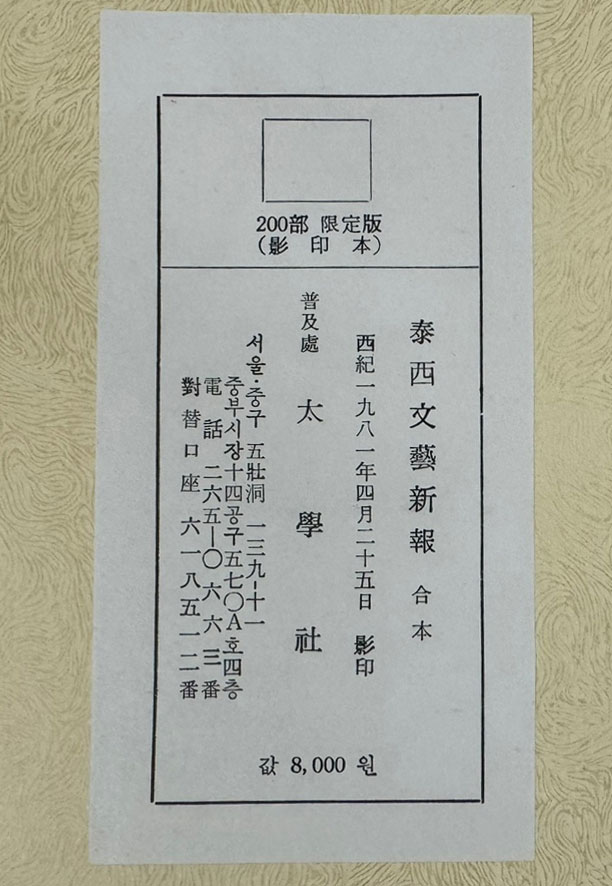 200部 限定版
(影印本)
泰西文藝新報 合本
西紀一九八一年四月二十五日 影印
普及處 太學社
서울·중구 五壯洞 一三九-十一
중부시장十四공구五七〇A호四층
電話 二六五-〇六六三番
對替口座 六一八五一二番
값 8,000 원